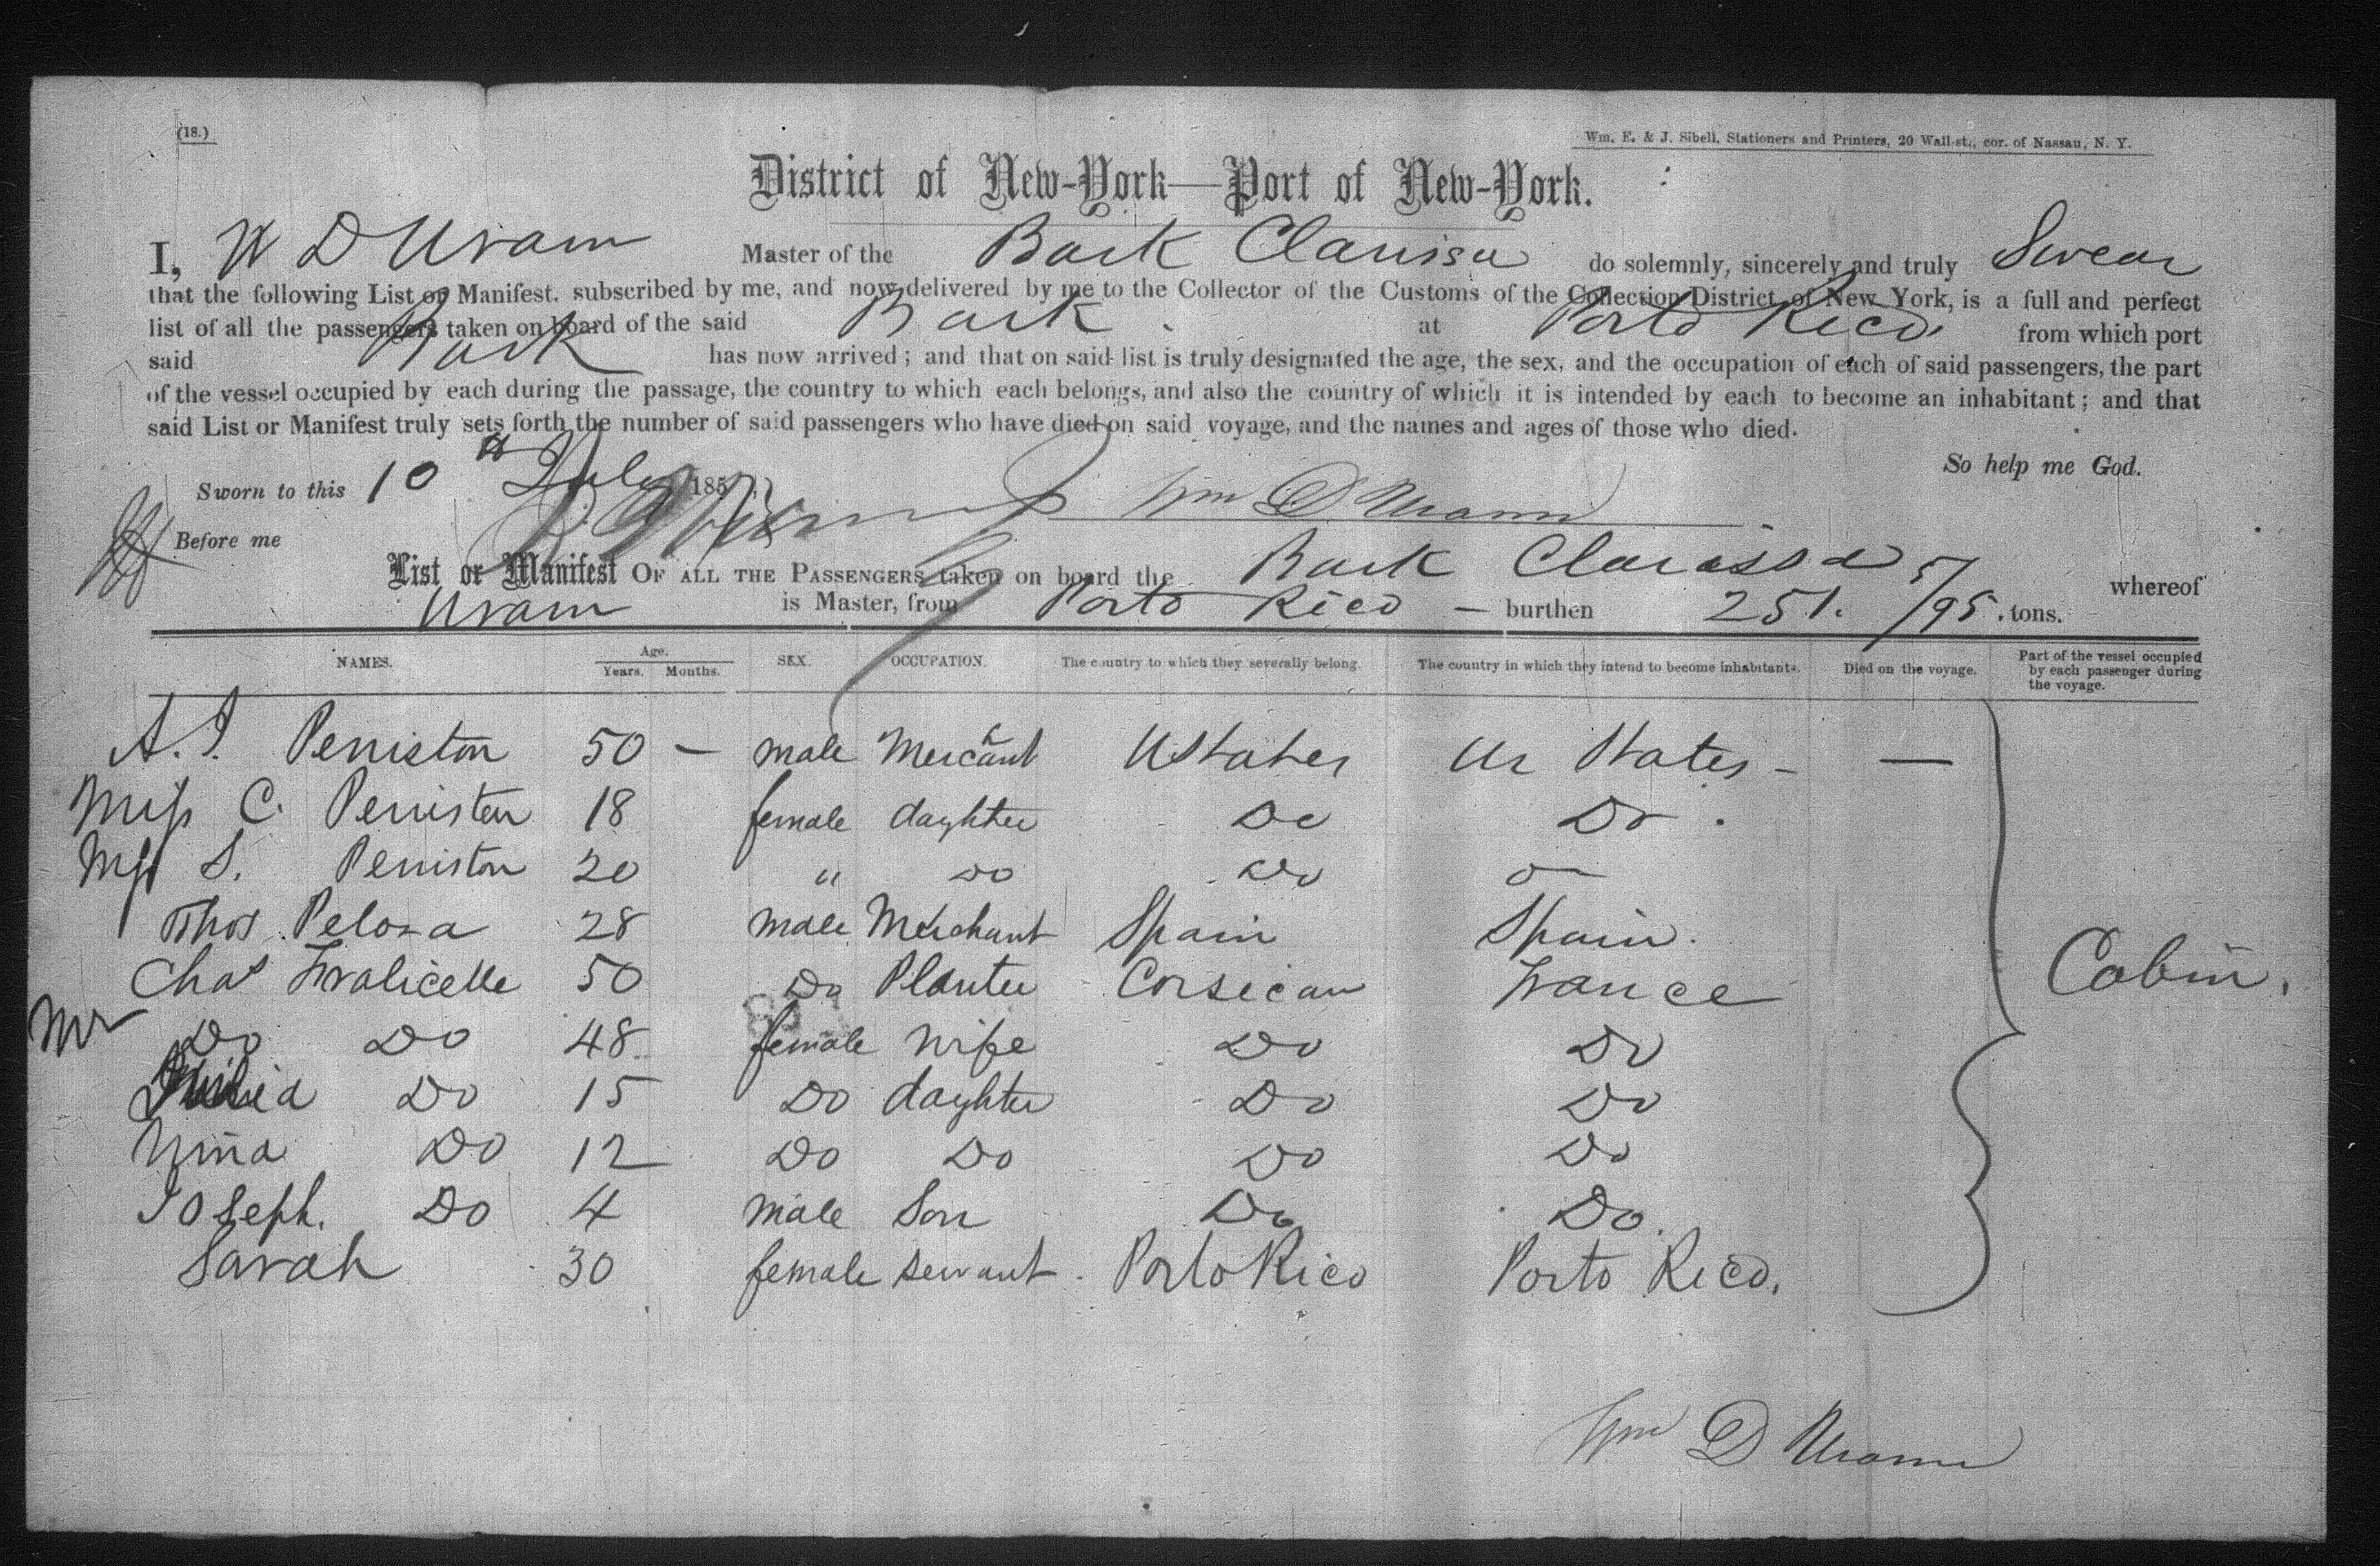 (18.)
Wm. E. & J. Sibell, Stationers and Printers, 20 Wall-st., cor. of Nassau, N. Y.
District of New-York—Port of New-York.
I, W D Urann Master of the Bark Clarissa do solemnly, sincerely and truly Swear
that the following List or Manifest, subscribed by me, and now delivered by me to the Collector of the Customs of the Collection District of New York, is a full and perfect
list of all the passengers taken on board of the said Bark at Porto Rico from which port
said Bark has now arrived; and that on said list is truly designated the age, the sex, and the occupation of each of said passengers, the part
of the vessel occupied by each during the passage, the country to which each belongs, and also the country of which it is intended by each to become an inhabitant; and that
said List or Manifest truly sets forth the number of said passengers who have died on said voyage, and the names and ages of those who died.
So help me God.
Sworn to this 10th July 185
Wm D Urann
Before me
List or Manifest OF ALL THE PASSENGERS taken on board the Bark Clarissa whereof
Urann is Master, from Porto Rico — burthen 251. 5/95. tons.
NAMES. Age. Years. Months. SEX. OCCUPATION. The country to which they severally belong. The country in which they intend to become inhabitants. Died on the voyage. Part of the vessel occupied by each passenger during the voyage.
A. J. Peniston 50 — male Merchant UStates Un States — —
Miss C. Peniston 18 female daughter Do Do.
Miss S. Peniston 20 " do Do
Thos Peloza 28 male Merchant Spain Spain.
Chas Fralicelle 50 Do Planter Corsican France Cabin.
Mr Do Do 48 female wife Do Do
Do 15 Do daughter Do Do
Nina Do 12 Do Do Do Do
Joseph. Do 4 male Son Do Do.
Sarah 30 female servant. Porto Rico Porto Rico.
Wm D Urann